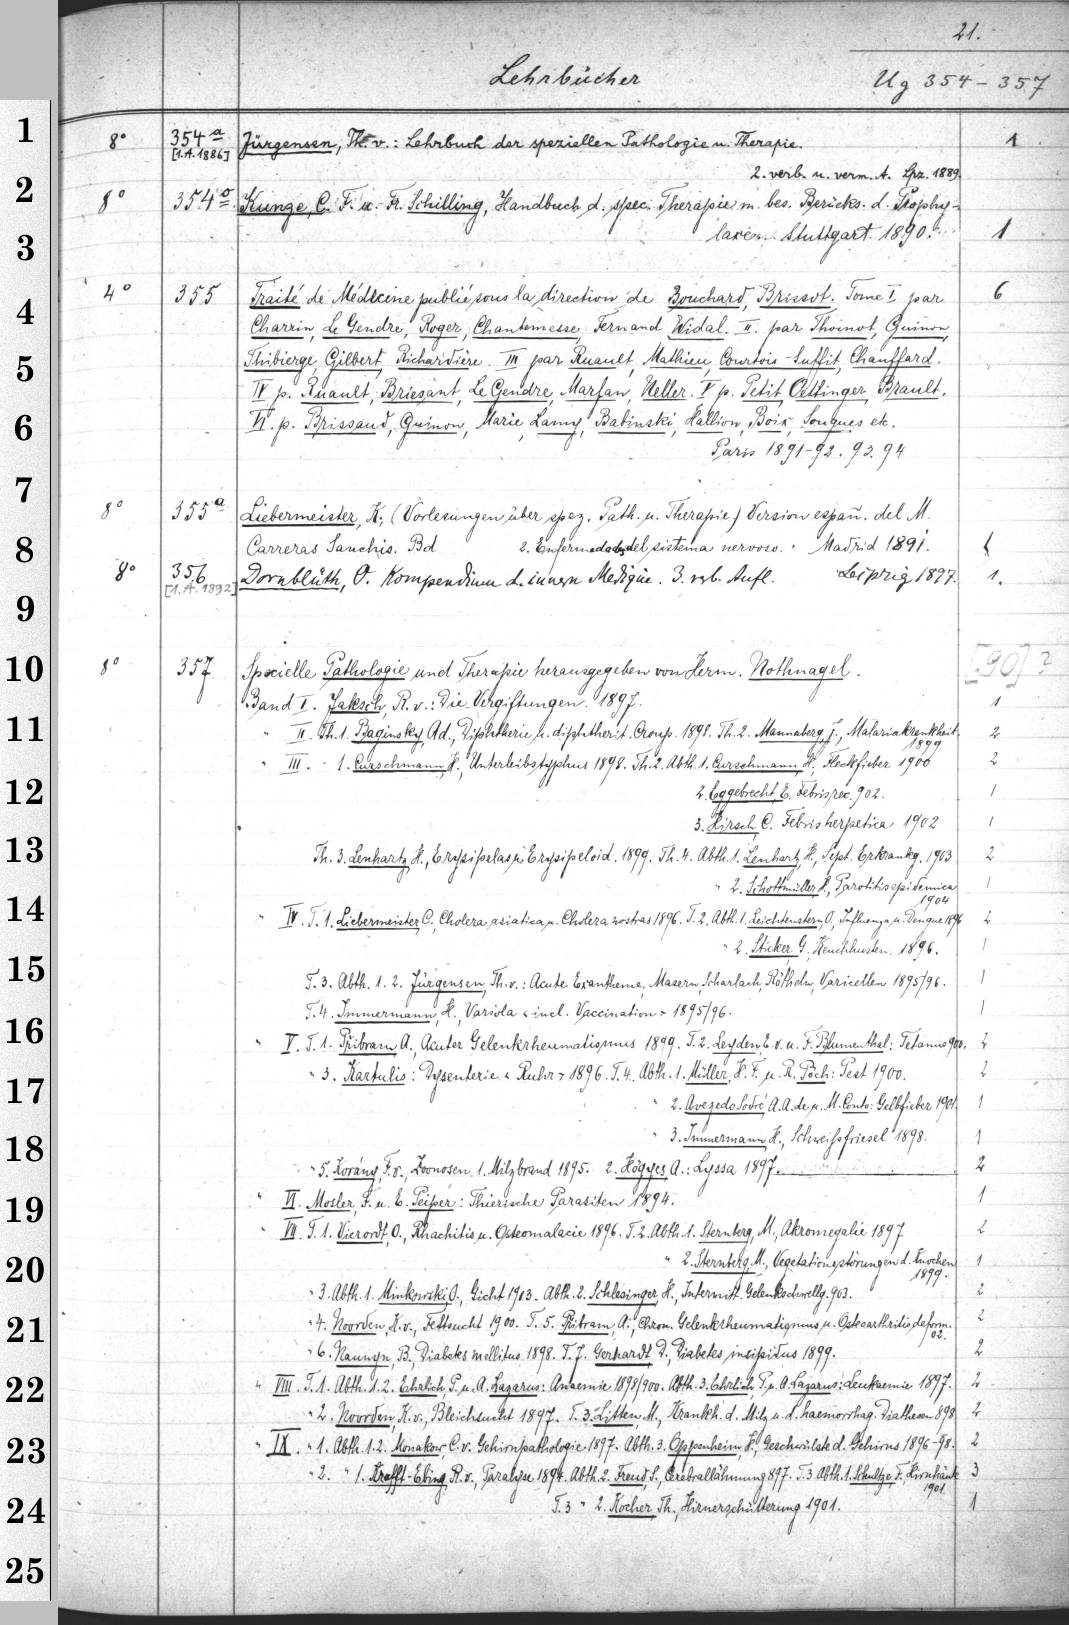 21.
Lehrbücher Ug 354-357
8° 354a Jürgensen, Th. v.: Lehrbuch der speziellen Pathologie u. Therapie. 1
[1.A.1886] 2. verb. u. verm. A. Lpz. 1889.
8° 354 Kunze, C. F. u. Fr. Schilling, Handbuch d. spec. Therapie m. bes. Berücks. d. Prophy-
laxe. Stuttgart 1890. 1
4° 355 Traité de Médecine publié sous la direction de Bouchard, Brissot. Tome I par 6
Charrin, Le Gendre, Roger, Chantemesse, Fernand Widal. II. par Thoinot, Guinon,
Thibierge, Gilbert, Richardière. III par Ruault, Mathieu, Courtois-Suffit, Chauffard.
IV p. Ruault, Briesant, Le Gendre, Marfan, Netter. V p. Petit, Oettinger, Brault.
VI. p. Brissaud, Guinon, Marie, Lamy, Babinski, Hallion, Boix, Souques etc.
Paris 1891-92. 93. 94
8° 355a Liebermeister, K. (Vorlesungen über spez. Path. u. Therapie) Version españ. del M.
Carreras Sanchis. Bd 2. Enfermedades del sistema nervoso. Madrid 1891.
8° 356 Dornblüth, O. Kompendium d. innern Medizin. 3. verb. Aufl. Leipzig 1897. 1.
[1.A.1892]
8° 357 Specielle Pathologie und Therapie herausgegeben von Herm. Nothnagel. [90] ?
Band I. Jaksch, R. v.: Die Vergiftungen. 1897. 1
" II. Th. 1. Baginsky, Ad., Diphtherie u. diphtherit. Croup. 1898. Th. 2. Mannaberg, J., Malariakrankheit. 1899 2
" III. " 1. Curschmann, H., Unterleibstyphus 1898. Th. 2. Abth. 1. Curschmann, H., Fleckfieber 1900 2
2. Eggebrecht, E. Febris rec. 902. 1
3. Hirsch, C. Febris herpetica 1902 1
Th. 3. Lenhartz, H., Erysipelas u. Erysipeloid. 1899. Th. 4. Abth. 1. Lenhartz, H., Sept. Erkrankg. 1903 2
" 2. Schottmüller, H., Parotitis epidemica 1904 1
" IV. T. 1. Liebermeister, C., Cholera asiatica u. Cholera nostras 1896. T. 2. Abth. 1. Leichtenstern, O., Influenza u. Dengue 1896 2
" 2. Sticker, G., Keuchhusten. 1896. 1
T. 3. Abth. 1. 2. Jürgensen, Th. v.: Acute Exantheme, Masern, Scharlach, Rötheln, Varicellen 1895/96. 1
T. 4. Immermann, H., Variola <incl. Vaccination> 1895/96. 1
" V. T. 1. Přibram, A., Acuter Gelenkrheumatismus 1899. T. 2. Leyden, E. v. u. F. Blumenthal: Tetanus 900. 2
" 3. Kartulis: Dysenterie <Ruhr> 1896. T. 4. Abth. 1. Müller, H. F. u. R. Pöch: Pest 1900. 2
" 2. Avezedo Sodré, A. A. de, u. M. Couto: Gelbfieber 1901. 1
" 3. Immermann, H., Schweißfriesel 1898. 1
" 5. Korány, F. v., Zoonosen. 1. Milzbrand 1895. 2. Högyes, A.: Lyssa 1897. 2
" VI. Mosler, F. u. E. Peiper: Thierische Parasiten 1894. 1
" VII. T. 1. Vierordt, O., Rhachitis u. Osteomalacie 1896. T. 2. Abth. 1. Sternberg, M., Akromegalie 1897 2
" 2. Sternberg, M., Vegetationsstörungen d. Knochen 1899. 1
" 3. Abth. 1. Minkowski, O., Gicht 1903. Abth. 2. Schlesinger, H., Intermitt. Gelenkschwellg. 903. 2
" 4. Noorden, K. v., Fettsucht 1900. T. 5. Přibram, A., Chron. Gelenkrheumatismus u. Osteoarthritis deform. 02. 2
" 6. Naunyn, B., Diabetes mellitus 1898. T. 7. Gerhardt, D., Diabetes insipidus 1899. 2
" VIII. T. 1. Abth. 1. 2. Ehrlich, P. u. A. Lazarus: Anaemie 1898/900. Abth. 3. Ehrlich, P. u. A. Lazarus: Leukaemie 1897. 2
" 2. Noorden, K. v., Bleichsucht 1897. T. 3. Litten, M., Krankh. d. Milz u. d. haemorrhag. Diathesen 898 2
" IX. " 1. Abth. 1. 2. Monakow, C. v. Gehirnpathologie 1897. Abth. 3. Oppenheim, H., Geschwülste d. Gehirns 1896-98. 2
" 2. " 1. Krafft-Ebing, R. v., Paralyse 1894. Abth. 2. Freud, S., Cerebrallähmung 897. T. 3 Abth. 1. Schultze, F., Hirnhäute 1901. 3
T. 3 " 2. Kocher, Th., Hirnerschütterung 1901. 1
1
2
3
4
5
6
7
8
9
10
11
12
13
14
15
16
17
18
19
20
21
22
23
24
25